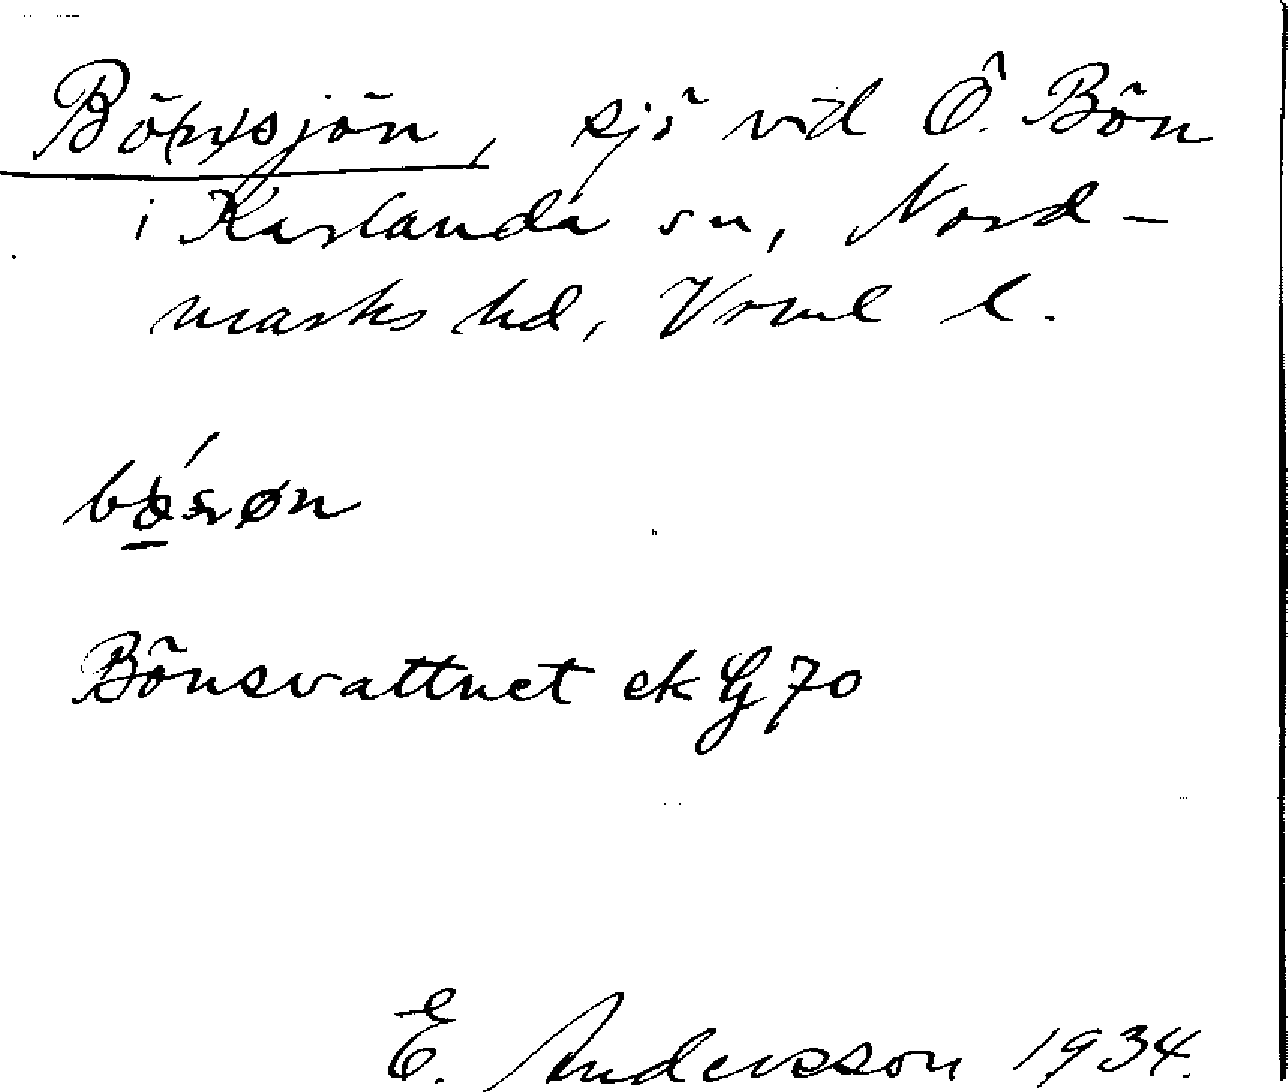 Bö(n)sjön, sjö vid Ö. Bön
i Karlanda sn, Nord-
marks hd, Vrml l.
Bönsvattnet ek G 70
E. Andersson 1934.